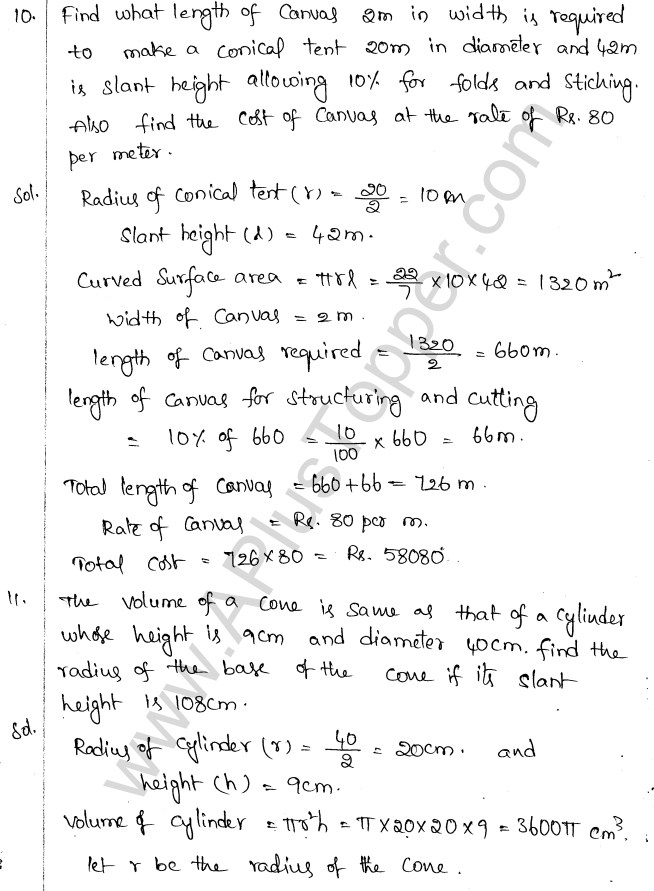 10. Find what length of Canvas 2m in width is required
to make a conical tent 20m in diameter and 42m
is slant height allowing 10% for folds and stiching.
Also find the cost of Canvas at the rate of Rs. 80
per meter.
Sol. Radius of conical tent (r) = 20/2 = 10 m
Slant height (l) = 42m.
Curved Surface area = πrl = 22/7 × 10 × 42 = 1320 m²
Width of Canvas = 2m.
length of Canvas required = 1320/2 = 660m.
length of Canvas for structuring and cutting
= 10% of 660 = 10/100 × 660 = 66m.
Total length of Canvas = 660 + 66 = 726 m.
Rate of Canvas = Rs. 80 per m.
Total cost = 726 × 80 = Rs. 58080.
11. The volume of a cone is same as that of a cylinder
whose height is 9cm and diameter 40cm. find the
radius of the base of the cone if its slant
height is 108cm.
Sol. Radius of cylinder (r) = 40/2 = 20cm. and
height (h) = 9cm.
Volume of cylinder = πr²h = π × 20 × 20 × 9 = 3600π cm³.
let r be the radius of the cone.
www.APlusTopper.com